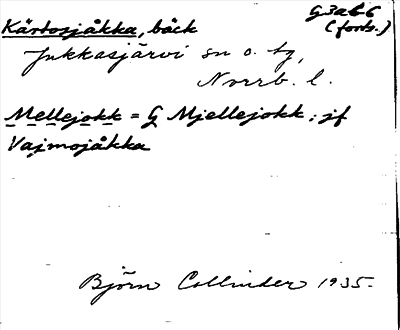 Kårtosjåkka, bäck
G3ab6
(forts.)
Jukkasjärvi sn o. tg,
Norrb. l.
Mellejokk = G Mjellejokk; jf
Vajmojåkka
Björn Collinder 1935.